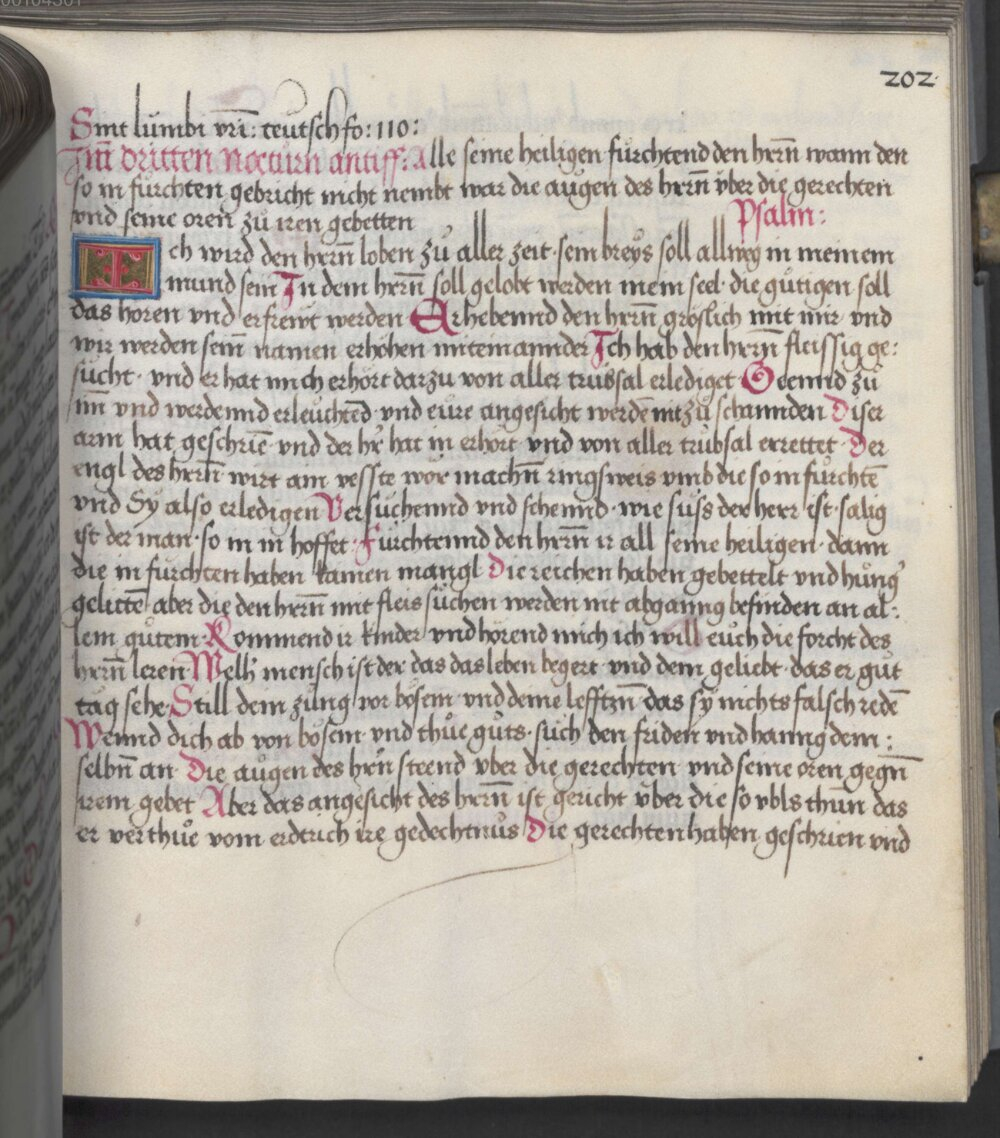 202
Sint lumbi vri: teutsch fo: 110:
Im dritten nocturn antiff: Alle seine heiligen furchtend den hern̄ wann den
so in furchten gebricht nicht nembt war die augen des hern̄ vber die gerechten
vnd seine oren̄ zu iren gebetten
Psalm:
Ich wird den hern̄ loben zu aller zeit · sein breys soll allweg in meinem
mund sein In dem hern̄ soll gelobt werden mein seel · die gutigen soll
das horen vnd erfrewt werden Erhebennd den hern̄ groslich mit mir · vnd
wir werden sein̄ namen erhohen miteinannder Ich hab den hern̄ fleissig ge:
sucht · vnd er hat mich erhort darzu von aller trubsal erlediget Geennd zu
im vnd werdennd erleuchted vnd eure angesicht werdē nit zu schannden Diser
arm hat geschrien̄ · vnd der hr̄ hat in erhort vnd von aller trubsal errettet · Der
engl des hern̄ wirt ain vesste wor machn̄ ringsweis vmb die so in furchtē
vnd Sy also erledigen Versuchennd vnd sehennd · wie suss der herr ist · salig
ist der man · so in in hoffet · Furchtennd den hern̄ ir all seine heiligen · dann
die in furchten haben kainen mangl Die reichen haben gebettelt vnd hung̉
gelittē aber die den hern̄ mit fleis suchen werden nit abganng befinden an al:
lem gutem · Kommend ir kinder vnd horend mich ich will euch die forcht des
hern̄ leren · Welh̉ mensch ist der das das leben begert vnd dem geliebt · das er gut
tag sehe · Still dein zung vor bosem · vnd deine lefftzn̄ das sy nichts falsch redē
Wennd dich ab von bosem vnd thue guts · such den friden vnd hanng dem :
selbn̄ an · Die augen des hrn̄ steend vber die gerechten vnd seine oren gegn̄
irem gebet Aber das angesicht des hern̄ ist gericht vber die so vbls thun das
er verthue vom erdtrich ire gedechtnus Die gerechten haben geschrien vnd